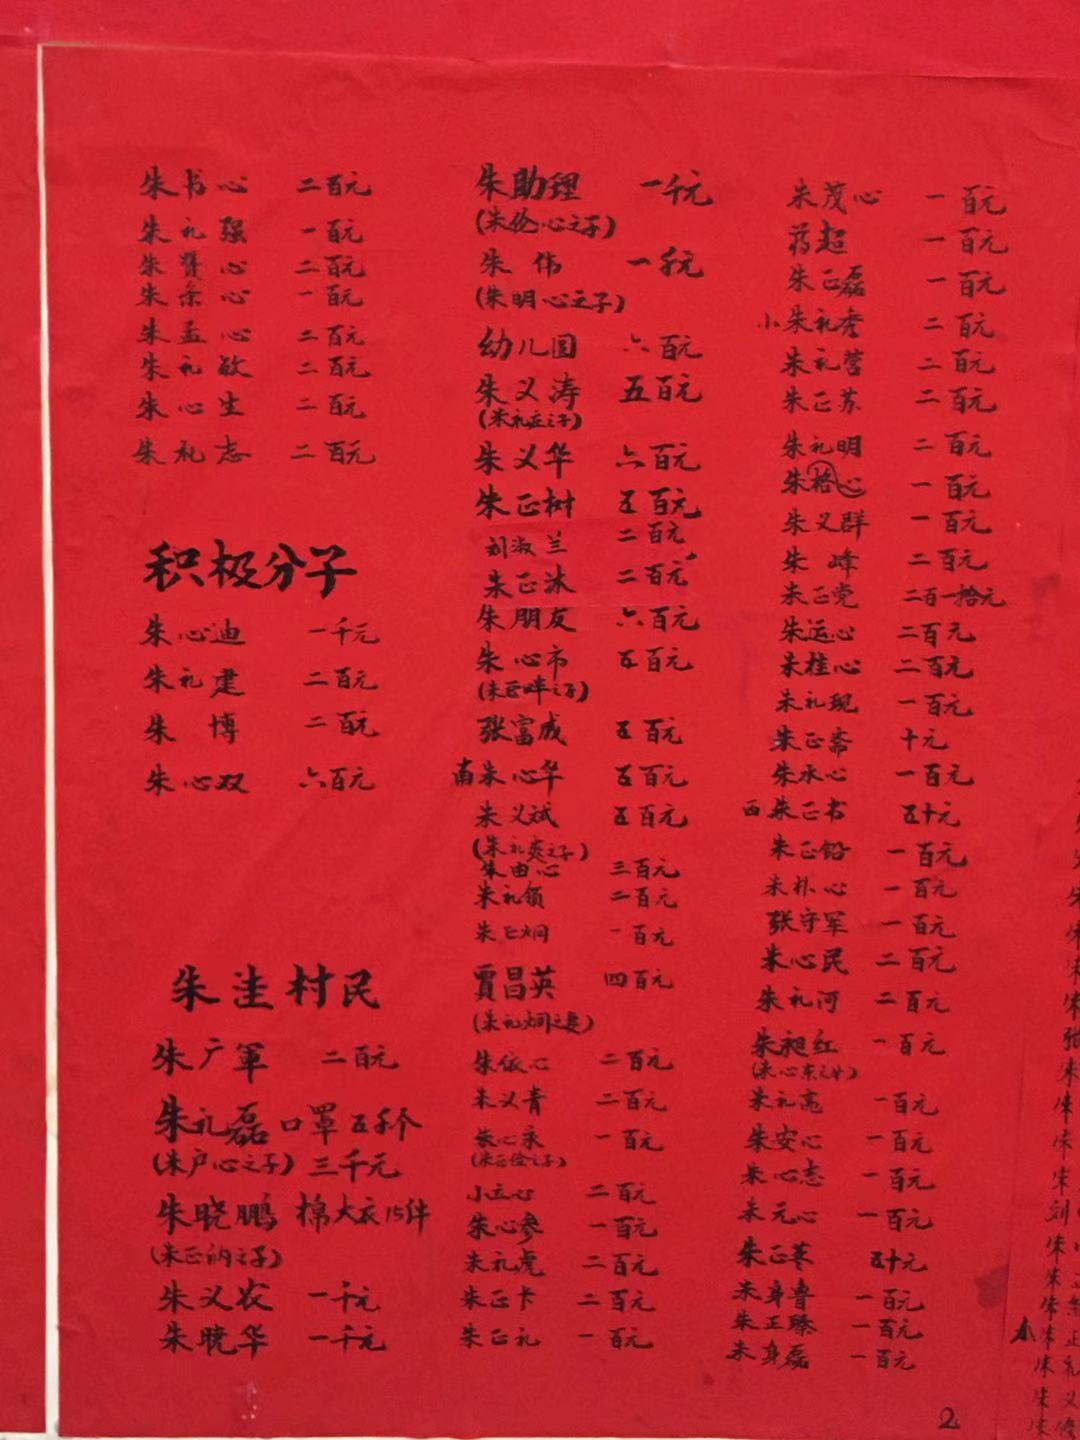 朱书心 二百元
朱礼强 一百元
朱贤心 二百元
朱条心 一百元
朱孟心 二百元
朱礼敏 二百元
朱心生 二百元
朱礼志 二百元
积极分子
朱心迪 一千元
朱礼建 二百元
朱博 二百元
朱心双 六百元
朱洼村民
朱广军 二百元
朱礼磊 口罩五千个
(朱户心之子) 三千元
朱晓鹏 棉大衣15件
(朱正纳之子)
朱义农 一千元
朱晓华 一千元
朱助理 一千元
(朱伦心之子)
朱伟 一千元
(朱明心之子)
幼儿园 六百元
朱义涛 五百元
(朱礼在之子)
朱义华 六百元
朱正树 五百元
刘淑兰 二百元
朱正沐 二百元
朱朋友 六百元
朱心市 五百元
(朱正峰之子)
张富成 五百元
南朱心华 五百元
朱义斌 五百元
(朱礼爽之子)
朱由心 三百元
朱礼领 二百元
朱正炯 一百元
贾昌英 四百元
(朱礼炯之妻)
朱依心 二百元
朱义青 二百元
朱心永 一百元
(朱正俭之子)
小立心 二百元
朱心参 一百元
朱礼虎 二百元
朱正卡 二百元
朱正礼 一百元
朱茂心 一百元
蒋超 一百元
朱正磊 一百元
小朱礼彦 二百元
朱礼营 二百元
朱正苏 二百元
朱礼明 二百元
朱格心 一百元
朱义群 一百元
朱峰 二百元
朱正党 二百一拾元
朱运心 二百元
朱桂心 二百元
朱礼现 一百元
朱正斋 十元
朱水心 一百元
西朱正书 五十元
朱正铅 一百元
朱朴心 一百元
张守军 一百元
朱心民 二百元
朱礼河 二百元
朱昶红 一百元
(朱心东之女)
朱礼亮 一百元
朱安心 一百元
朱心志 一百元
朱元心 一百元
朱正苓 五十元
朱身鲁 一百元
朱正臻 一百元
朱身磊 一百元
2